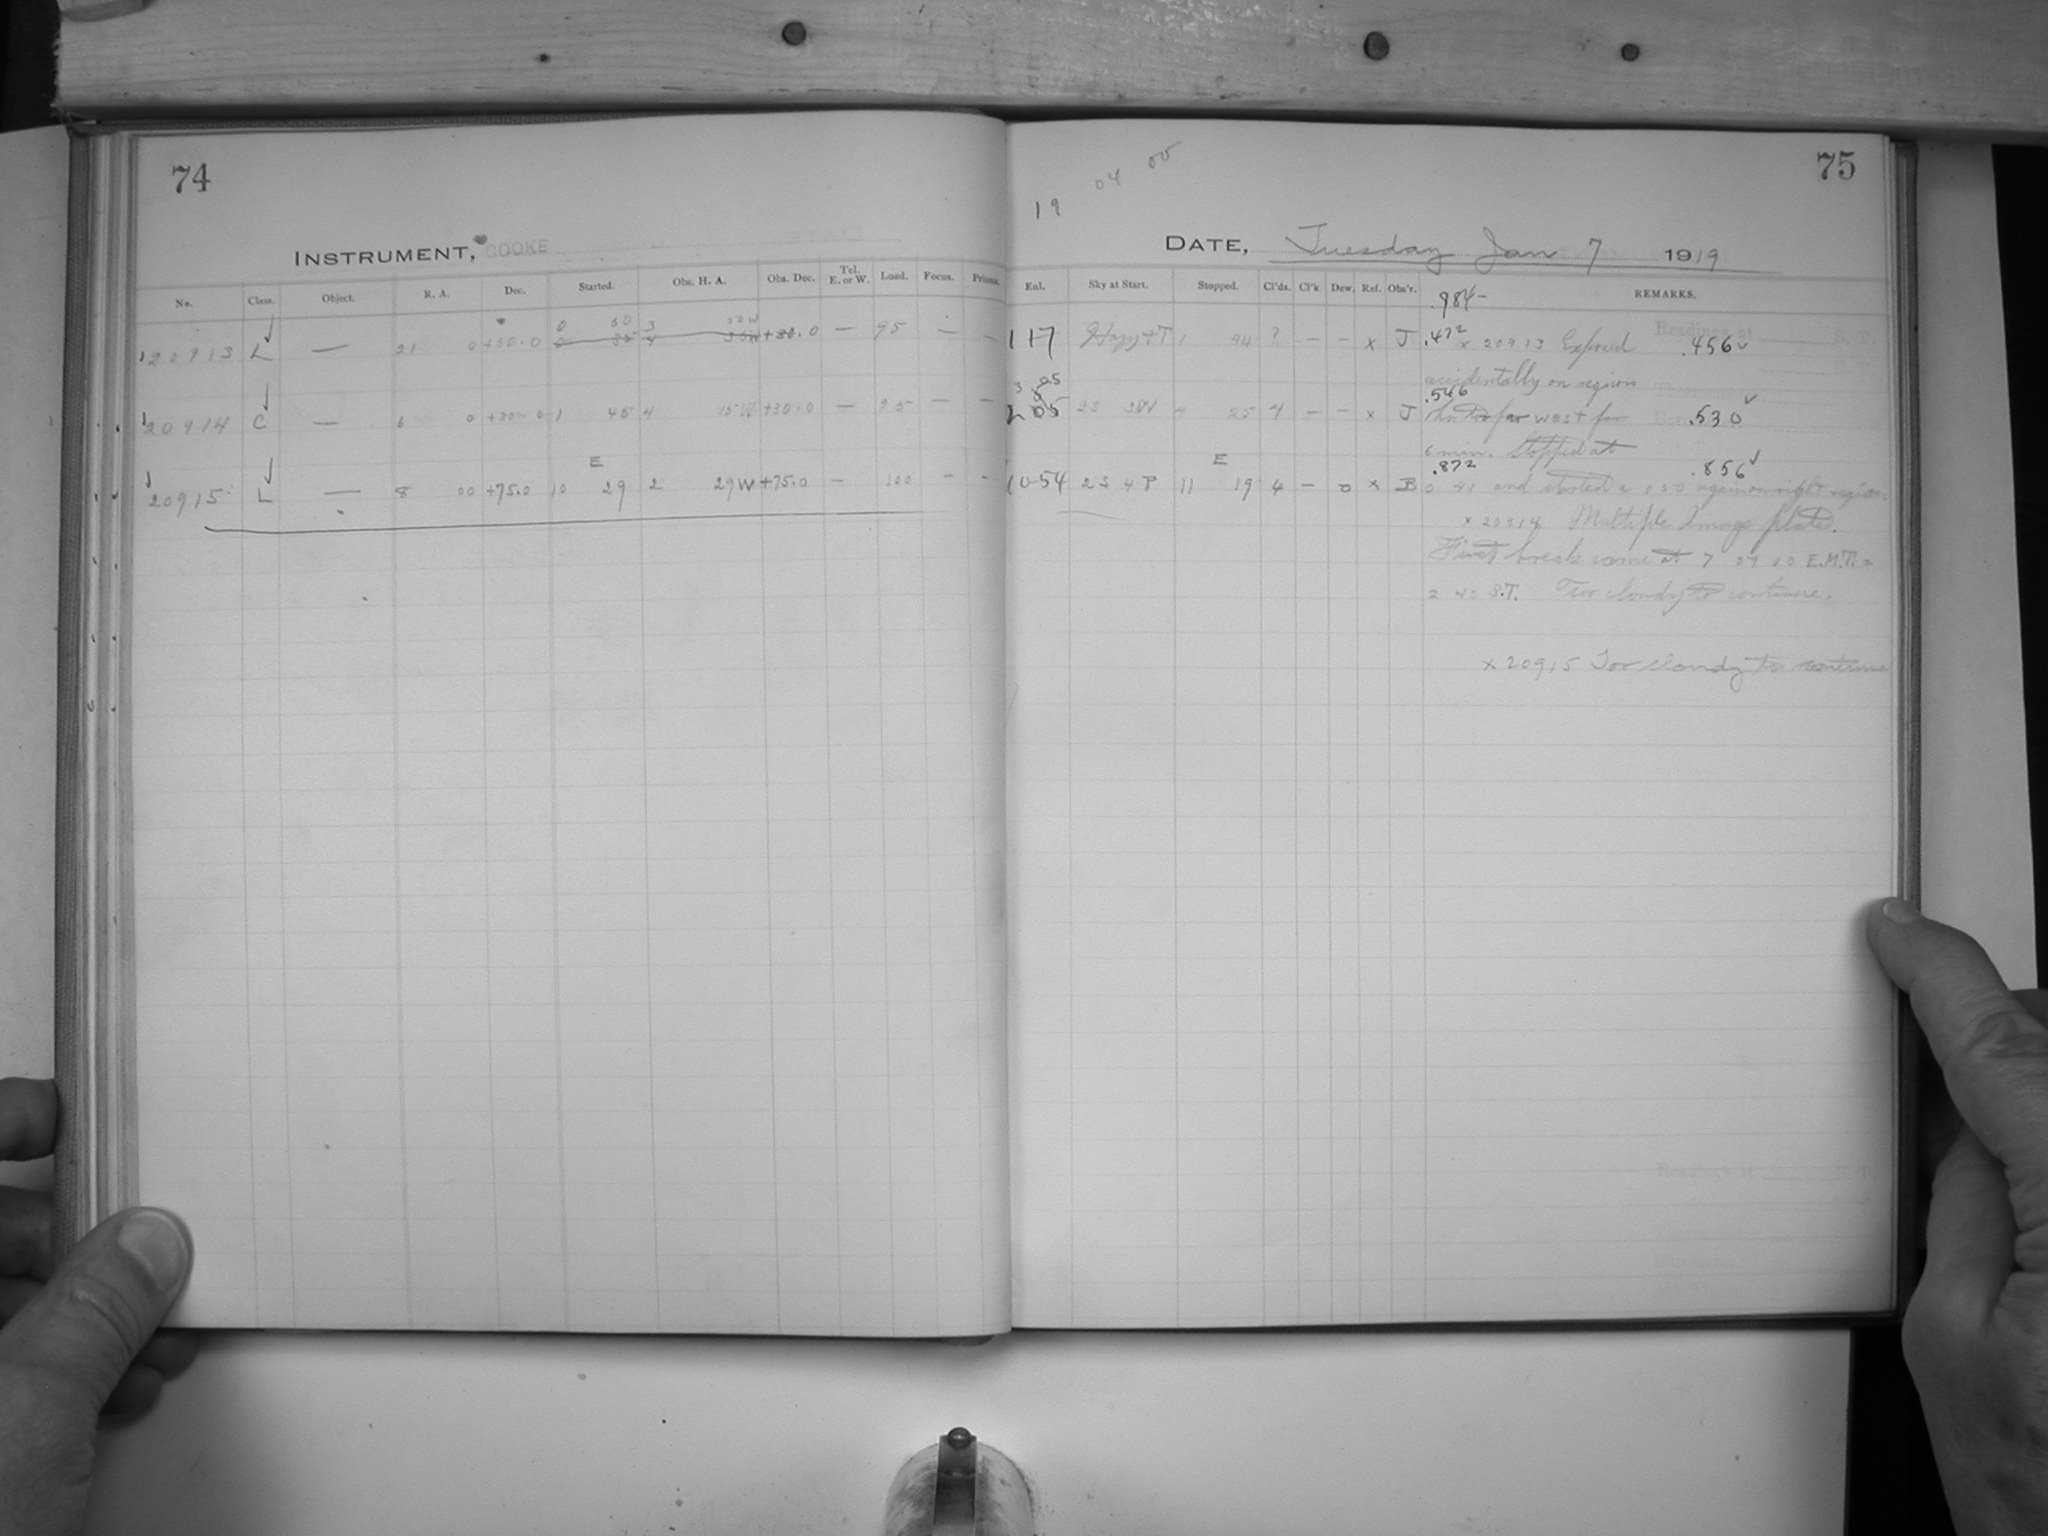 74
INSTRUMENT, COOKE
No. Class. Object. R. A. Dec. Started. Obs. H. A. Obs. Dec. Tel. E. or W. Load. Focus. Prisms.
0 50 3 50W
20913 L — 21 0 +30.0 +30.0 — 95 — —
20914 C — 6 0 +30.0 1 45 4 15W +30.0 — 95 — —
E
20915 L — 8 00 +75.0 10 29 2 29W +75.0 — 100 — —
19 04 05
75
DATE, Tuesday Jan 7 1919
Exl. Sky at Start. Stopped. Cl'ds. Cl'k Dew. Ref. Obs'r. REMARKS.
.984-
117 Hazy + T 1 ? — — x J .472 x 20913 Exposed .456
accidentally on region
.546
2S 3W 4 25 4 — — x J west for .530
6 min. Stopped at
E
.872 .856
10-54 2S 4P 11 19 4 — 0 x B 0 41 and started a 0 50 again on right region.
x 20914 Multiple Image plate.
First break came at 7 59 00 E.M.T. =
2 40 S.T. Too cloudy to continue.
x 20915 Too cloudy to continue
Readings at S. T.
Readings at S. T.